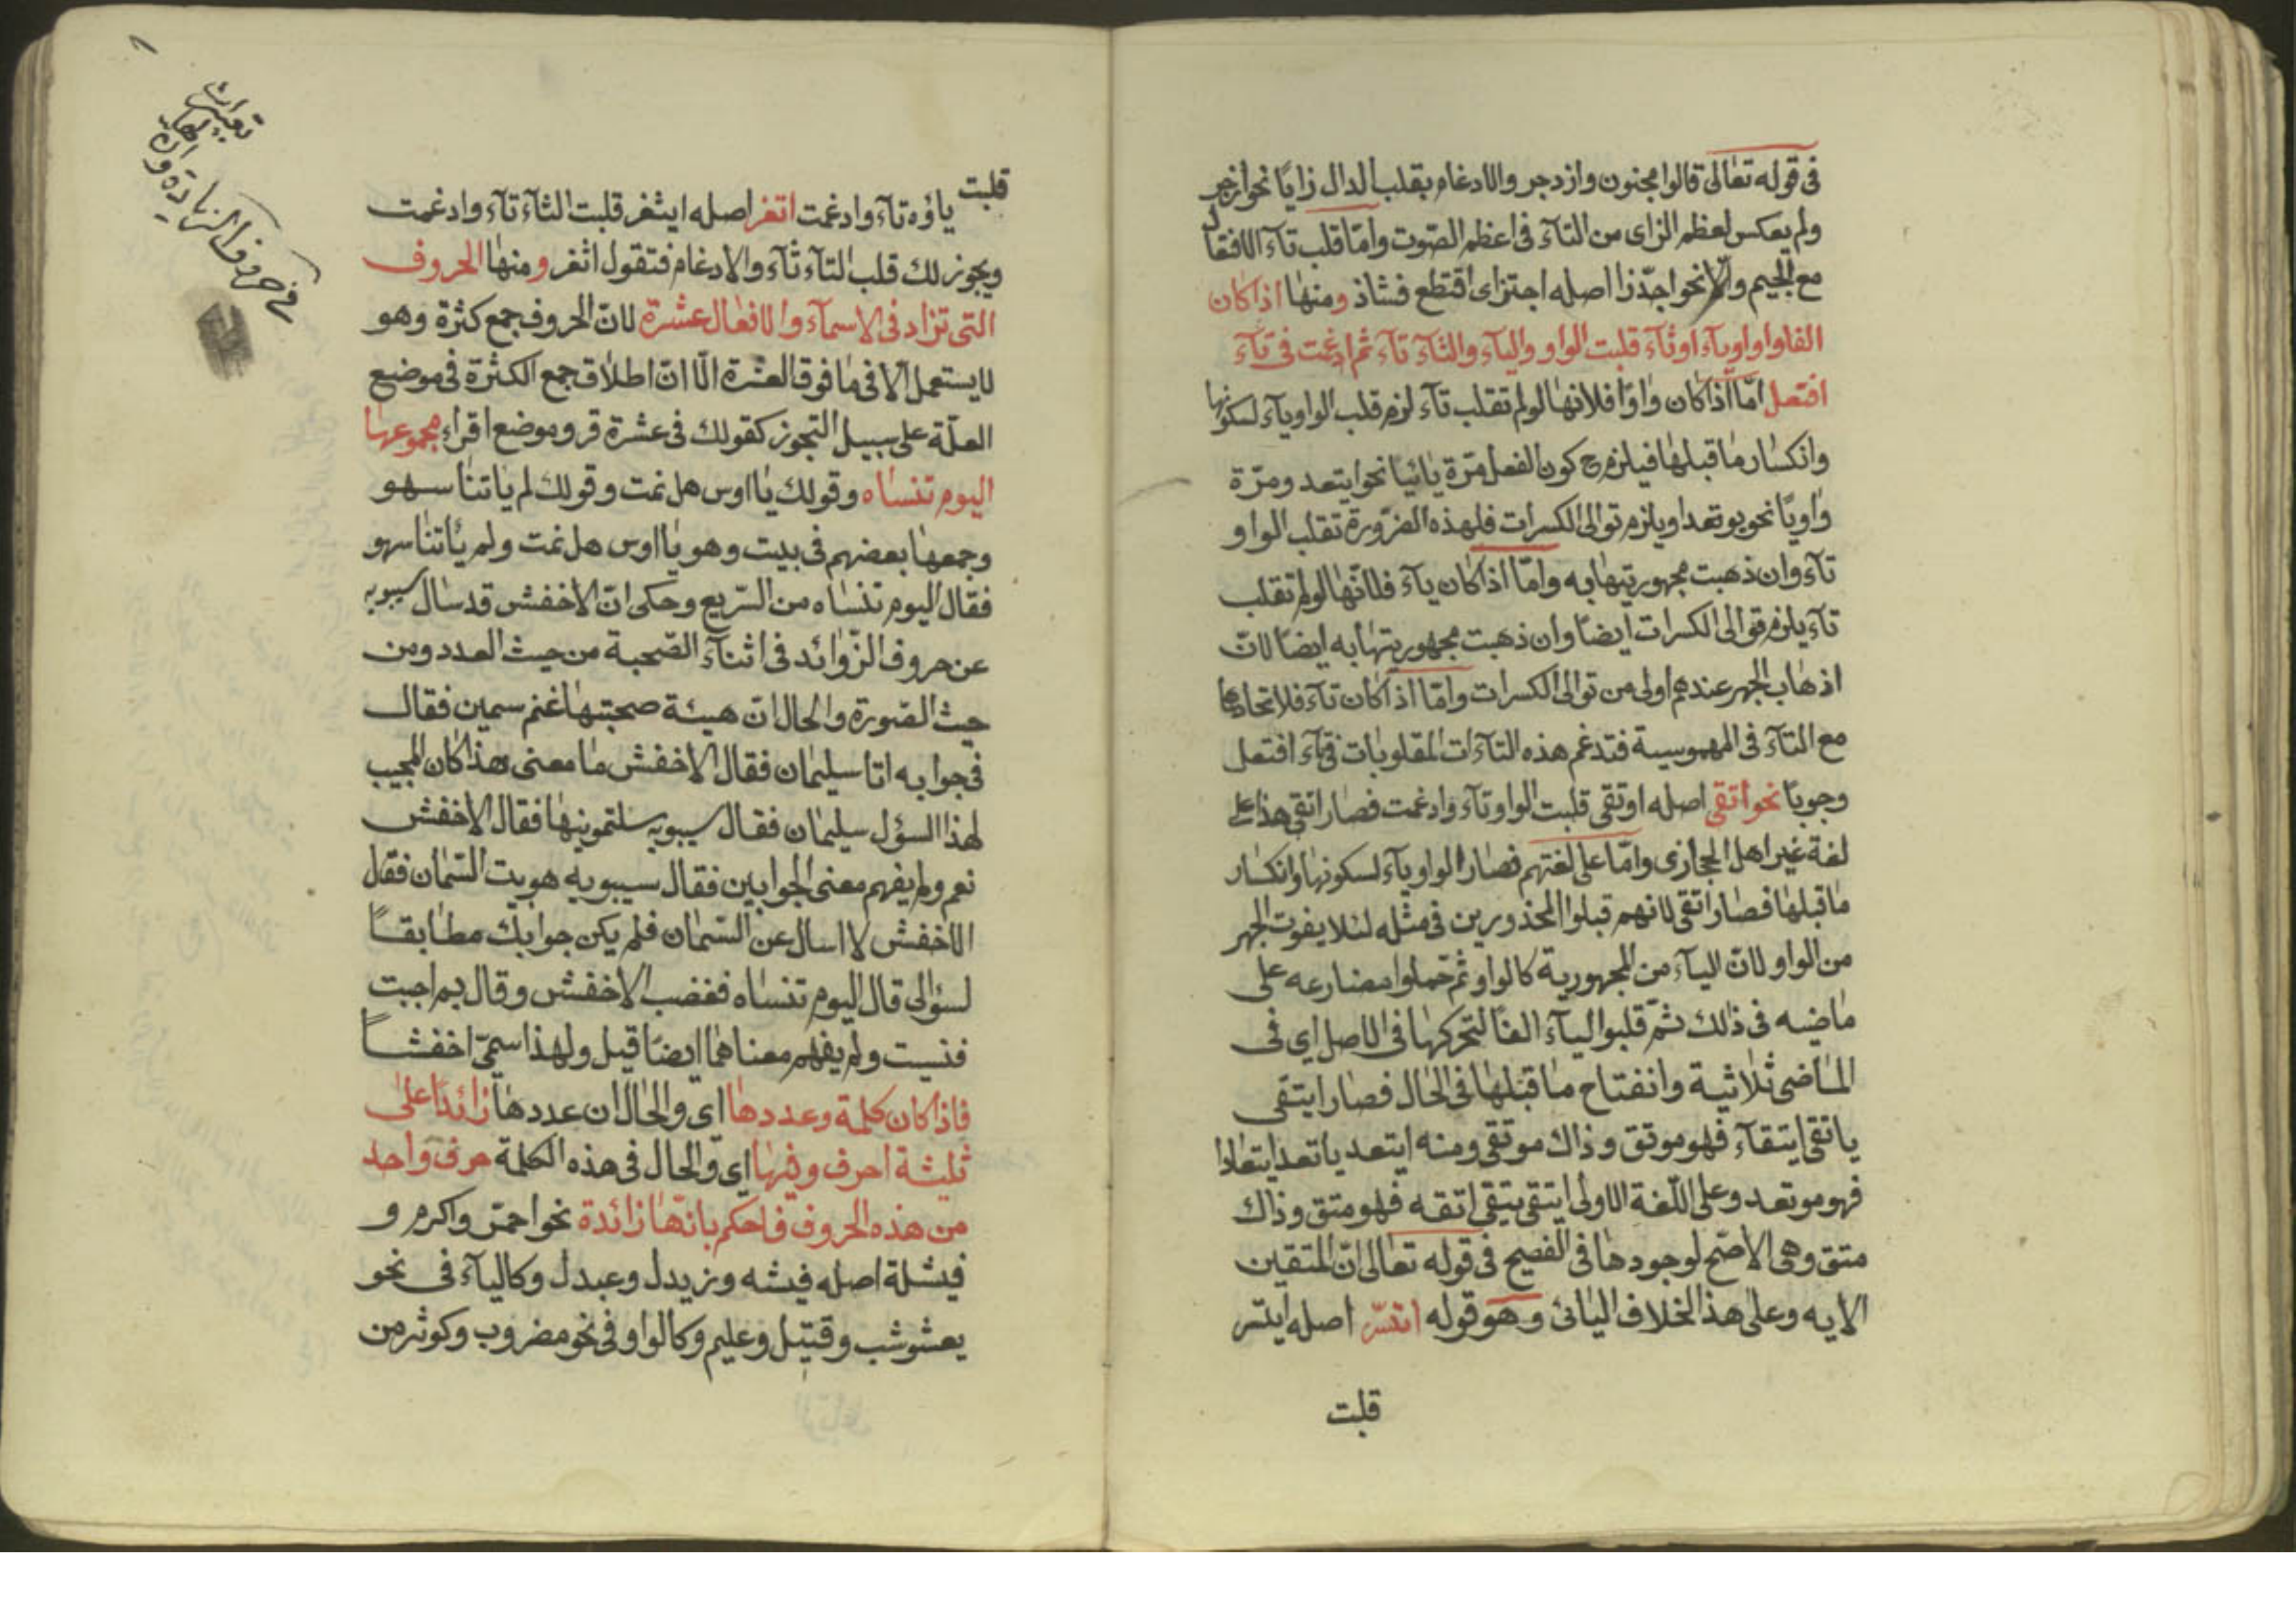 فى قوله تعالى قالوا مجنون وازدجر والادغام بقلب الدال زايا نحو ازجر
ولم يعكس لعظم الزاى من التآء فى اعظم الصّوت وامّا قلب تآء الافتعال
مع الجيم والّا نحو اجدّزا اصله اجتزاى اقتطع فشاذ ومنها اذا كان
الفا واوا اويآء اوثآء قلبت الواو واليآء والثآء تآء ثم ادغمت فى تآء
افتعل امّا اذا كان واوا فلانها لو لم تقلب تآء لزم قلب الواو يآء لسكونها
وانكسار ما قبلها فيلزم ح كون الفعل مرّة يائيا نحو ايتعد ومرّة
واويّا نحو يوتعد او يلزم توالى الكسرات فلهذه الضّرورة تقلب الواو
تآء وان ذهبت مجهوريتها به وامّا اذا كان يآء فلانّها لو لم تقلب
تآء يلزم توالى الكسرات ايضا وان ذهبت مجهوريتها به ايضا لانّ
اذهاب الجهر عندهم اولى من توالى الكسرات وامّا اذا كان تآء فلاتحادها
مع التآء فى المهموسية فتدغم هذه التآءات المقلوبات فى تآء افتعل
وجوبا نحو اتقى اصله اوتقى قلبت الواو تآء وادغمت فصار اتقى هذا على
لغة غير اهل الحجازى وامّا على لغتهم فصار الواو يآء لسكونها وانكسار
ما قبلها فصار اتقى لانهم قبلوا المحذورين فى مثله لئلا يفوت الجهر
من الواو لانّ اليآء من المجهورية كالواو ثم حملوا مضارعه على
ماضيه فى ذلك ثمّ قلبوا اليآء الفا لتحركها فى الاصل اى فى
الماضى ثلاثية وانفتاح ما قبلها فى الحال فصار ايتقى
ياتقى ايتقآء فهو موتق وذاك موتقى ومنه ايتعد ياتعد ايتعادا
فهو موتعد وعلى اللّغة الاولى ايتقى يتقى اتقه فهو متق وذاك
متق وهى الاصّح لوجودها فى الفصيح فى قوله تعالى انّ المتقين
الايه وعلى هذا الخلاف اليائى وهو قوله اتسّر اصله ايتسر
قلبت
قلبت
ياؤه تآء وادغمت اتغر اصله ايثغر قلبت الثآء تآء وادغمت
ويجوز لك قلب التآء ثآء والادغام فتقول اثغر ومنها الحروف
التى تزاد فى الاسمآء والافعال عشرة لانّ الحروف جمع كثرة وهو
لا يستعمل الا فى ما فوق العشرة الّا انّ اطلاق جمع الكثرة فى موضع
العلّة على سبيل التجوز كقولك فى عشرة قرو موضع اقراء مجموعها
اليوم تنساه وقولك يا اوس هل نمت وقولك لم ياتنا سهو
وجمعها بعضهم فى بيت وهو يا اوس هل نمت ولم يأتنا سهو
فقال اليوم تنساه من السّريع وحكى انّ الاخفش قد سال سيبويه
عن حروف الزّوائد فى اثنآء الصّحبة من حيث العدد ومن
حيث الصّورة والحال انّ هيئة صحبتها غنم سمين فقال
فى جوابه اتا سليمان فقال الاخفش ما معنى هذا كان المجيب
لهذا السؤل سليمان فقال سيبويه سلتمونيها فقال الاخفش
نعم ولم يفهم معنى الجوابين فقال سيبويه هويت السّمان فقال
الاخفش لا اسال عن السّمان فلم يكن جوابك مطابقاً
لسؤالى قال اليوم تنساه فغضب الاخفش وقال بم اجبت
فنسيت ولم يفهم معناهما ايضا قيل ولهذا سمّى اخفشاً
فاذا كان كلمة وعددها اى والحال ان عددها زائدا على
ثلثة احرف وفيها اى والحال فى هذه الكلمة حرف واحد
من هذه الحروف فاحكم بانّها زائدة نحو احمرّ واكرم و
فيشلة اصله فيشه وزيدل وعبدل وكاليآء فى نحو
يعشوشب وقتيل وعليم وكالواو فى نحو مضروب وكوثر من
فى حروف الزيادة